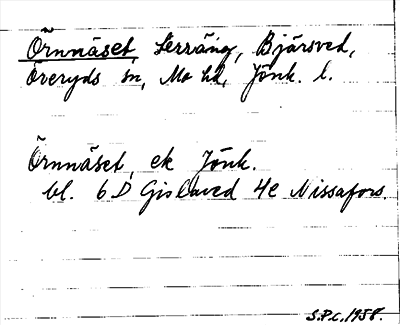 Örnnäset, terräng, Bjärsved,
Öreryds sn, Mo hd, Jönk. l.
Örnnäset, ek Jönk.
bl. 6 D Gislaved 4e Nissafors.
S.P.C. 1958.